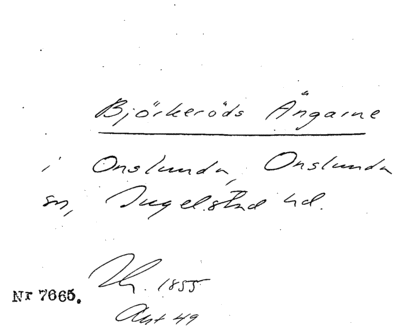 Björkeröds Ängarne
i Onslunda, Onslunda
sn, Ingelstad hd.
Nr 7665.
1855
Akt 49